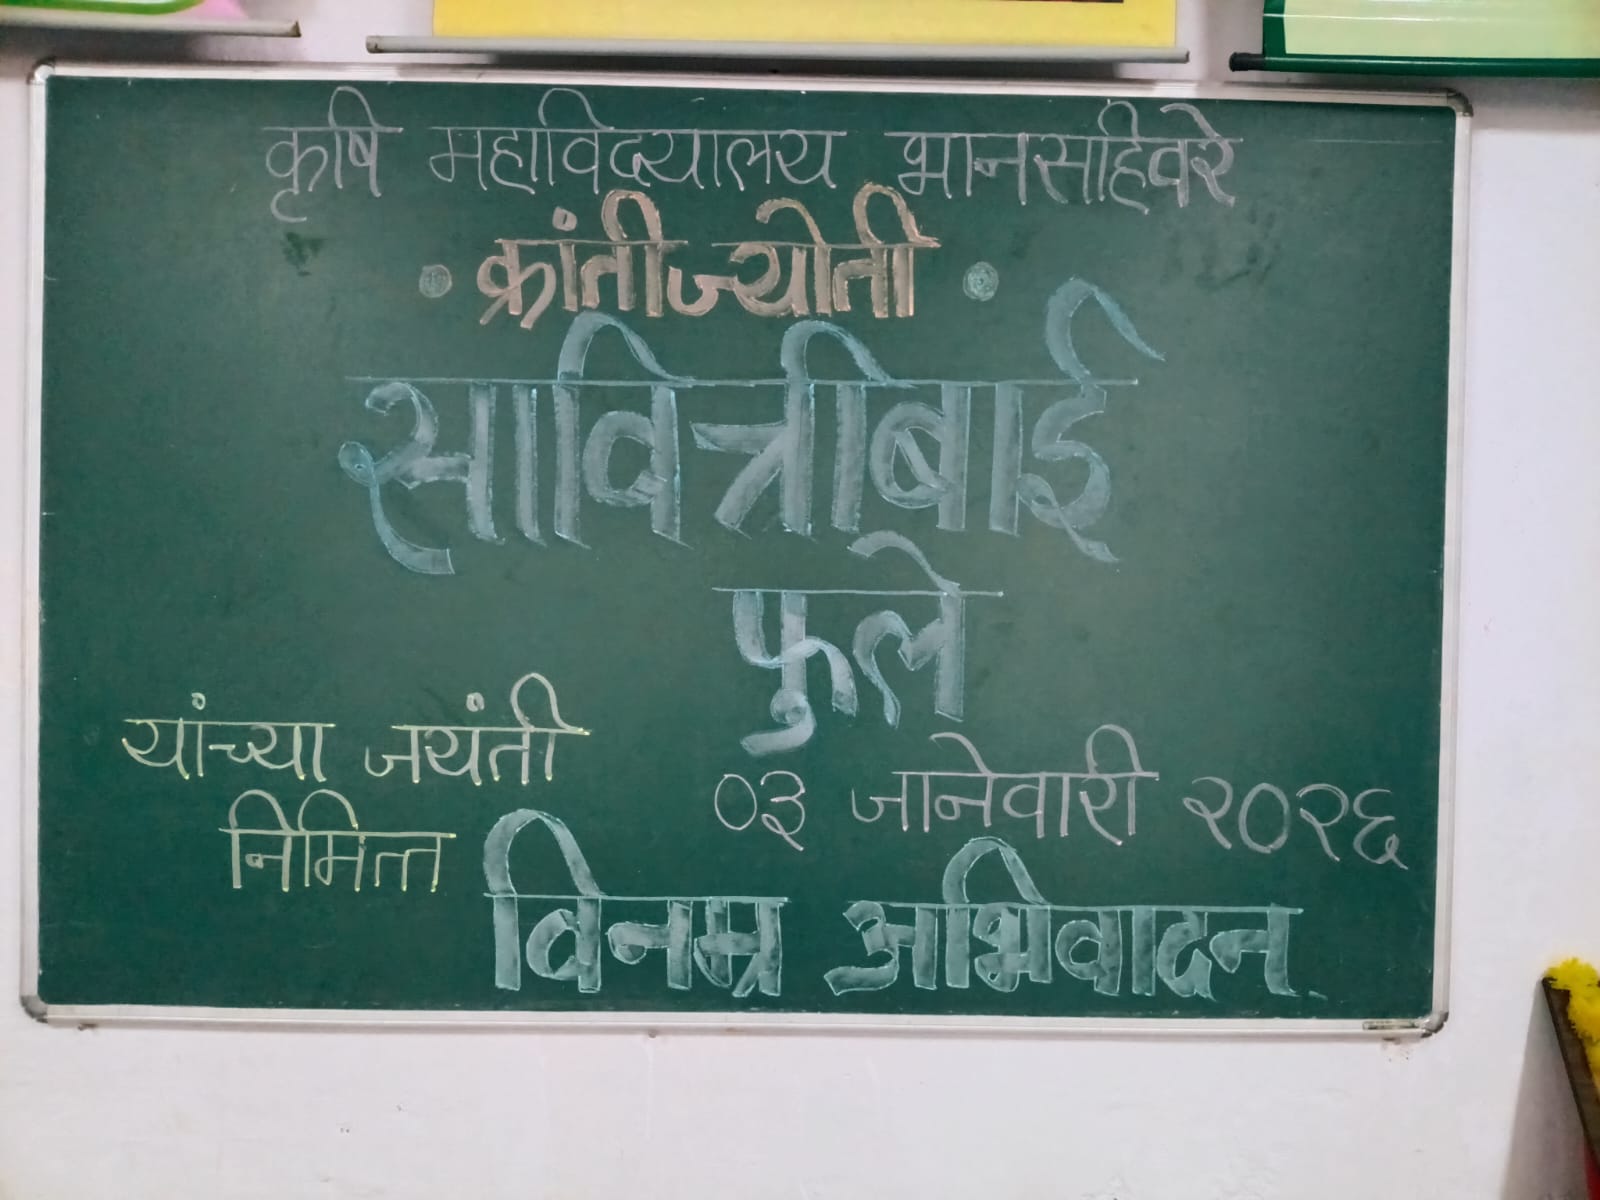 कृषि महाविद्यालय भानसहिवरे
• क्रांतीज्योती •
सावित्रीबाई
फुले
यांच्या जयंती
निमित्त
०३ जानेवारी २०२६
विनम्र अभिवादन.